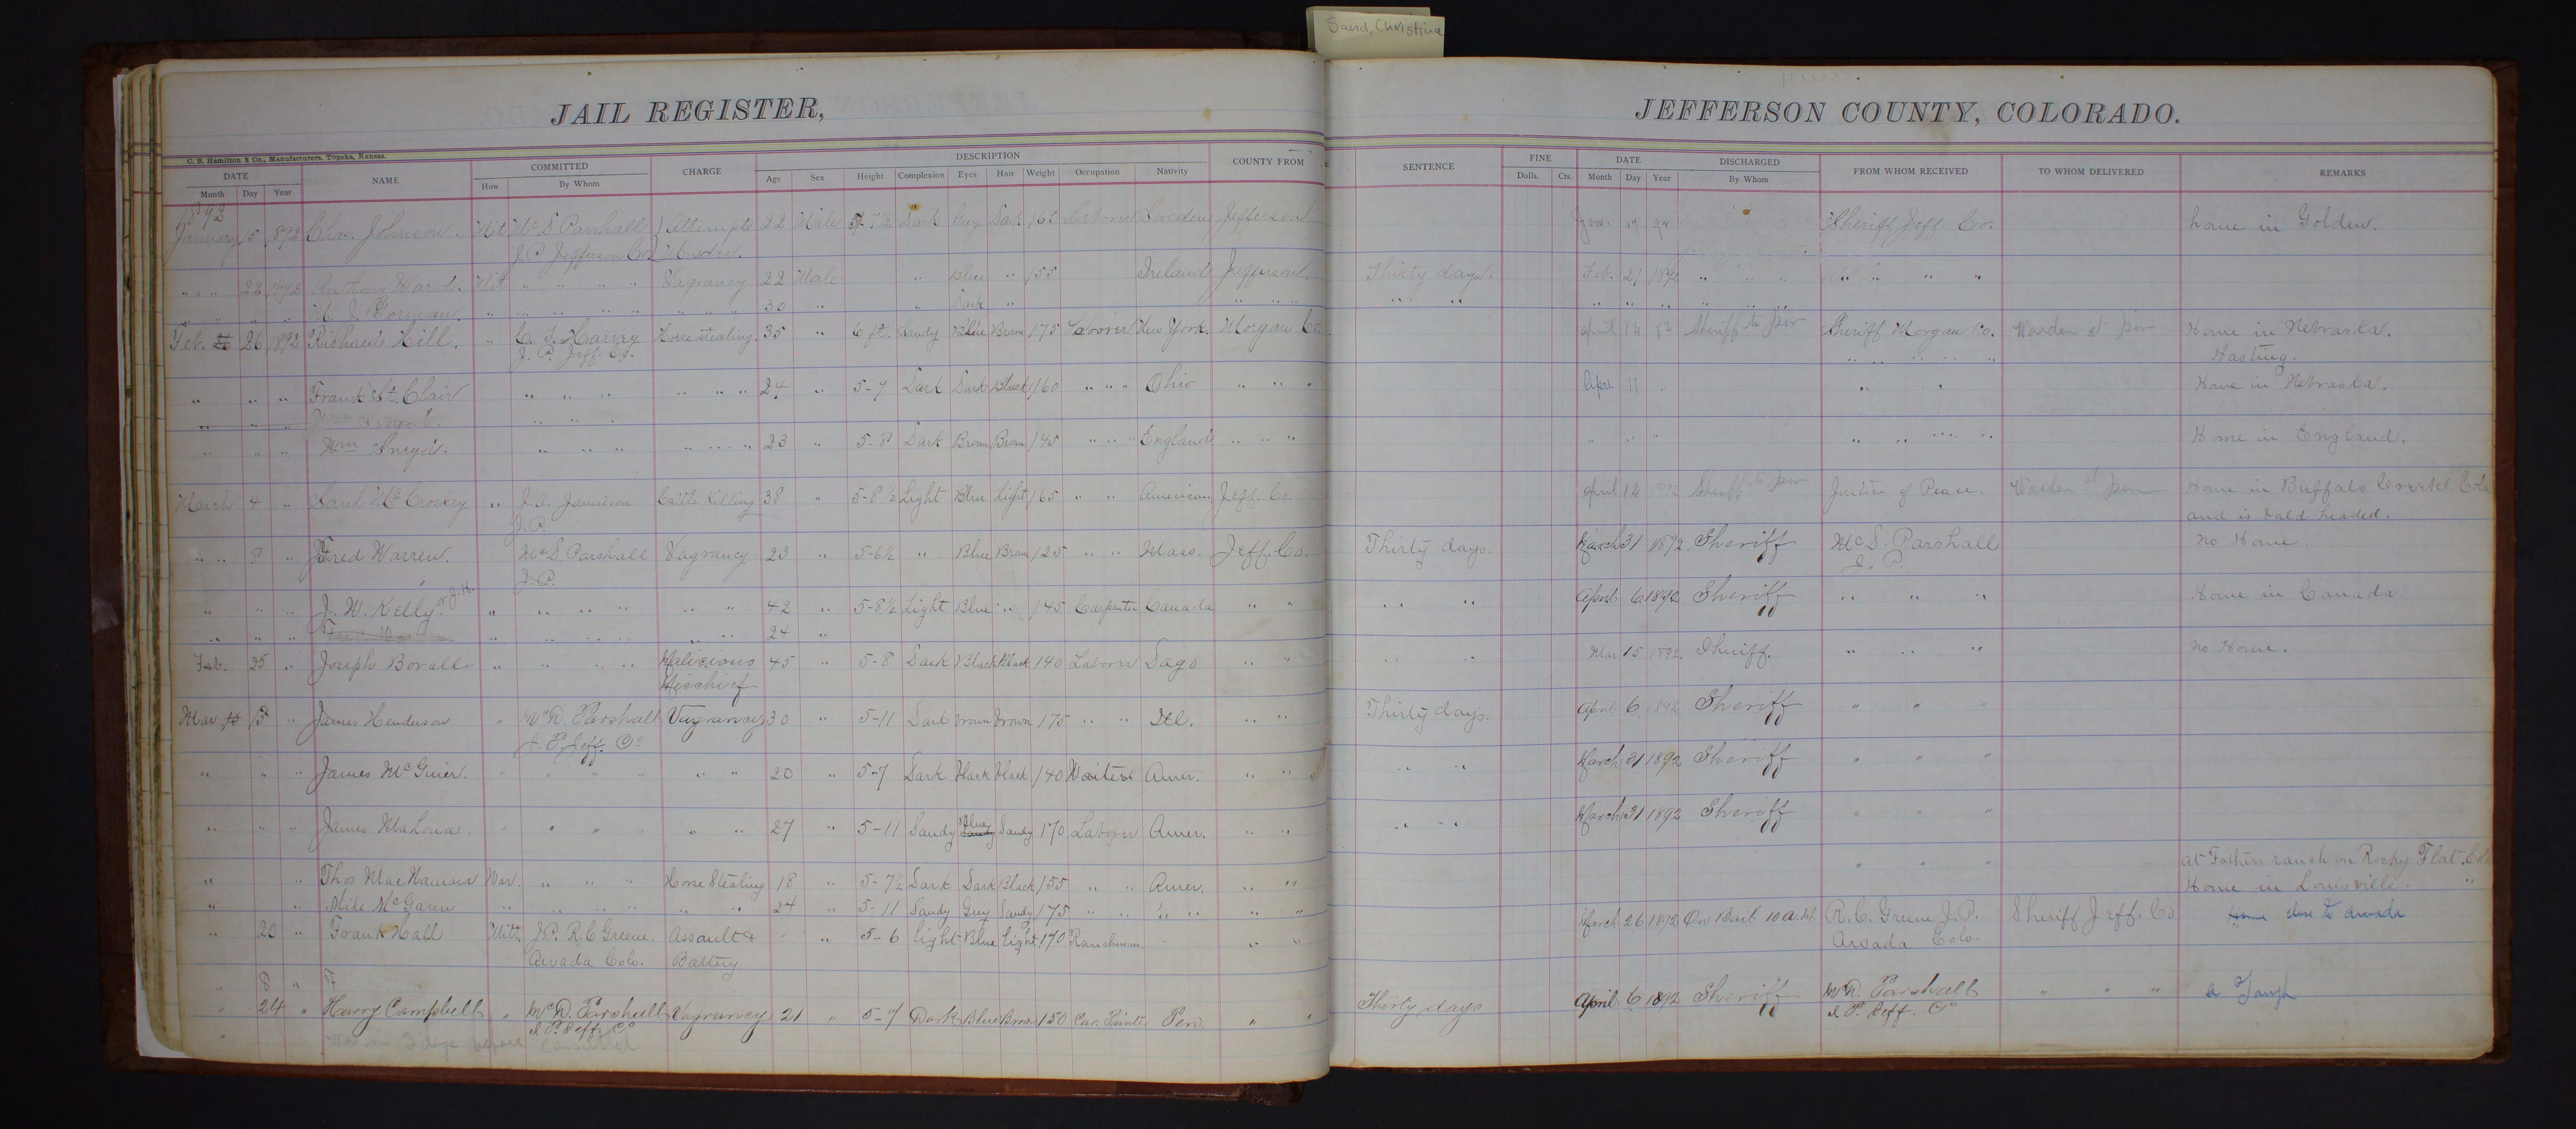 Sand, Christina
JAIL REGISTER,
JEFFERSON COUNTY, COLORADO.
C. B. Hamilton & Co., Manufacturers, Topeka, Kansas.
DATE NAME COMMITTED CHARGE DESCRIPTION COUNTY FROM SENTENCE FINE DATE DISCHARGED FROM WHOM RECEIVED TO WHOM DELIVERED REMARKS
Month Day Year How By Whom Age Sex Height Complexion Eyes Hair Weight Occupation Nativity Dolls. Cts. Month Day Year By Whom
1892
January 5 1892 Chas. Johnson. Mit McD Parshall Attempt 22 Male 5-7½ Dark Grey Dark 160 Laborer Sweden Jefferson Jan. Sheriff Jeff. Co. home in Golden.
J.P. Jefferson Co. Murder.
" " 22 1892 Anthony Ward. Mit " " " " Vagrancy 22 Male " Blue " 155 Ireland Jefferson. Thirty days. Feb. 21 1892 " " " " "
" " " " Gorman. " " " " " " " " 30 " " Dark " " " " " " " " " " " "
Feb. 26 1892 Richard Hill. " C. F. Harvey Horse stealing. 35 " 6 ft. Sandy Blue Brown 175 Laborer New York. Morgan Co. April 14 92 Sheriff to pen Sheriff Morgan Co. Warden at pen Home in Nebraska.
J. P. Jeff. Co. " " " " " Hasting.
" " " Frank St. Clair " " " " " " 24 " 5-9 Dark Dark Black 160 " " " Ohio " " " April 11 " " Home in Nebraska.
" " " " " "
" " " Wm Sneyd. " " " " " " " 23 " 5-8 Dark Brown Brown 145 " " " England " " " " " " " " " " Home in England.
March 4 " Saul McCroskey " J. A. Jamieson Cattle Killing 38 " 5-8½ Light Blue Light 165 " " American Jeff. Co. April 14 1892 Sheriff to pen Justice of Peace. Warden at pen Home in Buffalo Creek Colo
J.P. and is bald headed.
" " 8 " Fred Warren. McD. Parshall Vagrancy 23 " 5-6½ " Blue Brown 125 " " Mass. Jeff. Co. Thirty days. March 31 1892 Sheriff McD. Parshall no Home.
J.P. J. P.
" " " J. W. Kelly. or J. H. " " " " " " " 42 " 5-8½ Light Blue " 145 Carpenter Canada " " " " April 6 1892 Sheriff " " " Home in Canada
" " " " " " " " " " 24 "
Feb. 25 " Joseph Borall " " " " " Malicious 45 " 5-8 Dark Black Black 140 Laborer Sago " " " " Mar 15 1892. Sheriff. " " " no Home.
Mischief
Mar 15 " James Henderson " McD. Parshall Vagrancy 30 " 5-11 Dark brown brown 175 " " Ill. " " Thirty days. April 6 1892 Sheriff " " "
J. P. Jeff. Co
" " " James McGuier. " " " " " " " 20 " 5-7 Dark black black 140 Waiter Amer. " " " " March 31 1892 Sheriff " " "
" " " James Malona. " " " " " " 27 " 5-11 Sandy Blue Sandy 170 Laborer Amer. " " " " March 31 1892 Sheriff " " "
" " Thos MacNamara War. " " " Horse Stealing 18 " 5-7½ Dark Dark Black 155 " " Amer. " " " " " at Fathers ranch on Rocky Flat. Colo
" " Mike McGann " " " " " " " 24 " 5-11 Sandy Grey Sandy 175 " " " " " " Home in Louisville. "
" 20 " Frank Hall Mitt. J.P. R.C Greene. Assault & " 5-6 light Blue Light 170 Ranchman. " " March 26 1892 On Bail 10 A.M. R. C. Greene J.P. Sheriff Jeff. Co. Home close to Arvada
Arvada Colo. Battery Arvada Colo.
" 8 " F
" 24 " Harry Campbell " McD. Parshall Vagrancy 21 " 5-7 Dark Blue Brown 150 Car. Painter Pen. " " Thirty days April 6 1892 Sheriff McD. Parshall " " " a Tamp
J P. Jeff. Co J P. Jeff. Co
Was in 3 days before Comitted